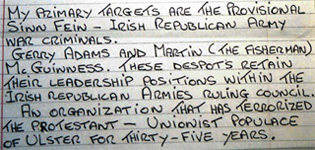 MY PRIMARY TARGETS ARE THE PROVISIONAL
SINN FEIN - IRISH REPUBLICAN ARMY
WAR CRIMINALS.
GERRY ADAMS AND MARTIN (THE FISHERMAN)
MC GUINNESS. THESE DESPOTS RETAIN
THEIR LEADERSHIP POSITIONS WITHIN THE
IRISH REPUBLICAN ARMIES RULING COUNCIL.
AN ORGANIZATION THAT HAS TERRORIZED
THE PROTESTANT - UNIONIST POPULACE
OF ULSTER FOR THIRTY-FIVE YEARS.